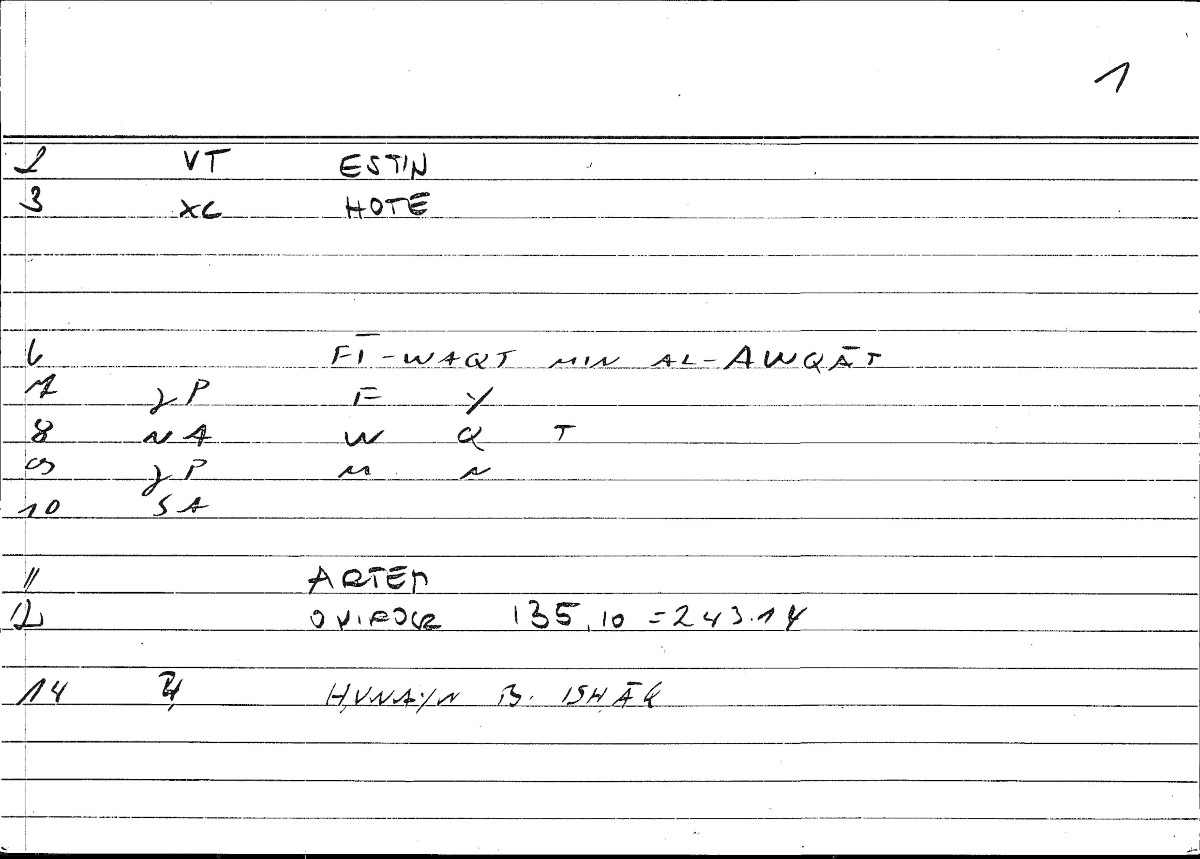 1
2 VT ESTIN
3 XC HOTE
6 FĪ-WAQT MIN AL-AWQĀT
7 γP F Y
8 NA W Q T
9 γP M N
10 SA
11 ARTEM
12 ONIROCR 135,10 = 243.14
14 ḤUNAYN B. ISḤĀQ